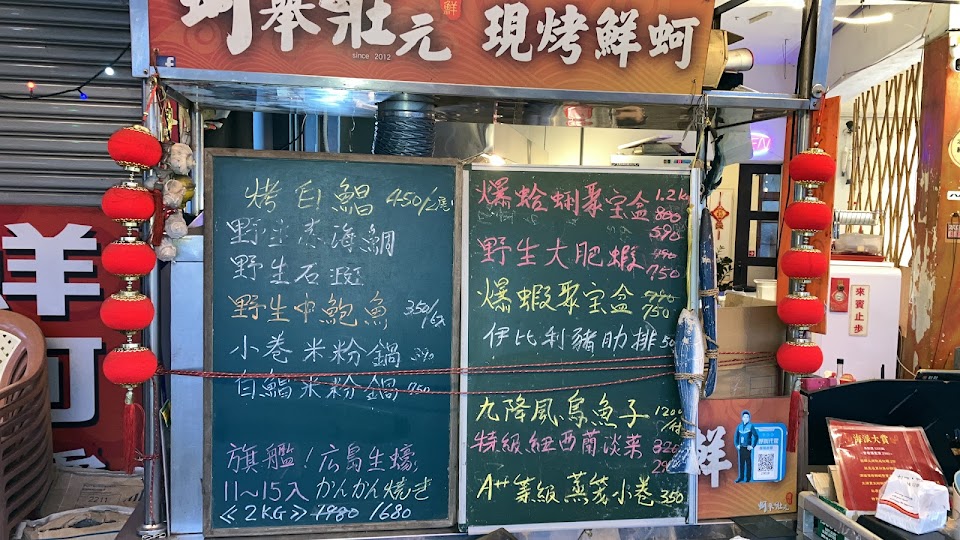 蚵舉狀元 現烤鮮蚵
since 2012
烤白鯧 450/2尾
野生赤海鯛
野生石斑
野生中鮑魚 350/6入
小卷米粉鍋 390
白鯧米粉鍋 750
旗艦!広島生蠔
11~15入 かんかん焼き
≪2KG≫ 1980 1680
爆蛤蜊聚宝盒 1.2kg
800
590
野生大肥蝦 990
750
爆蝦聚宝盒 990
750
伊比利豬肋排
九降風烏魚子 1200/付
特級紐西蘭淡菜 320
A++等級蒸籠小卷 350
鮮
來賓止步
蚵舉狀元
2211